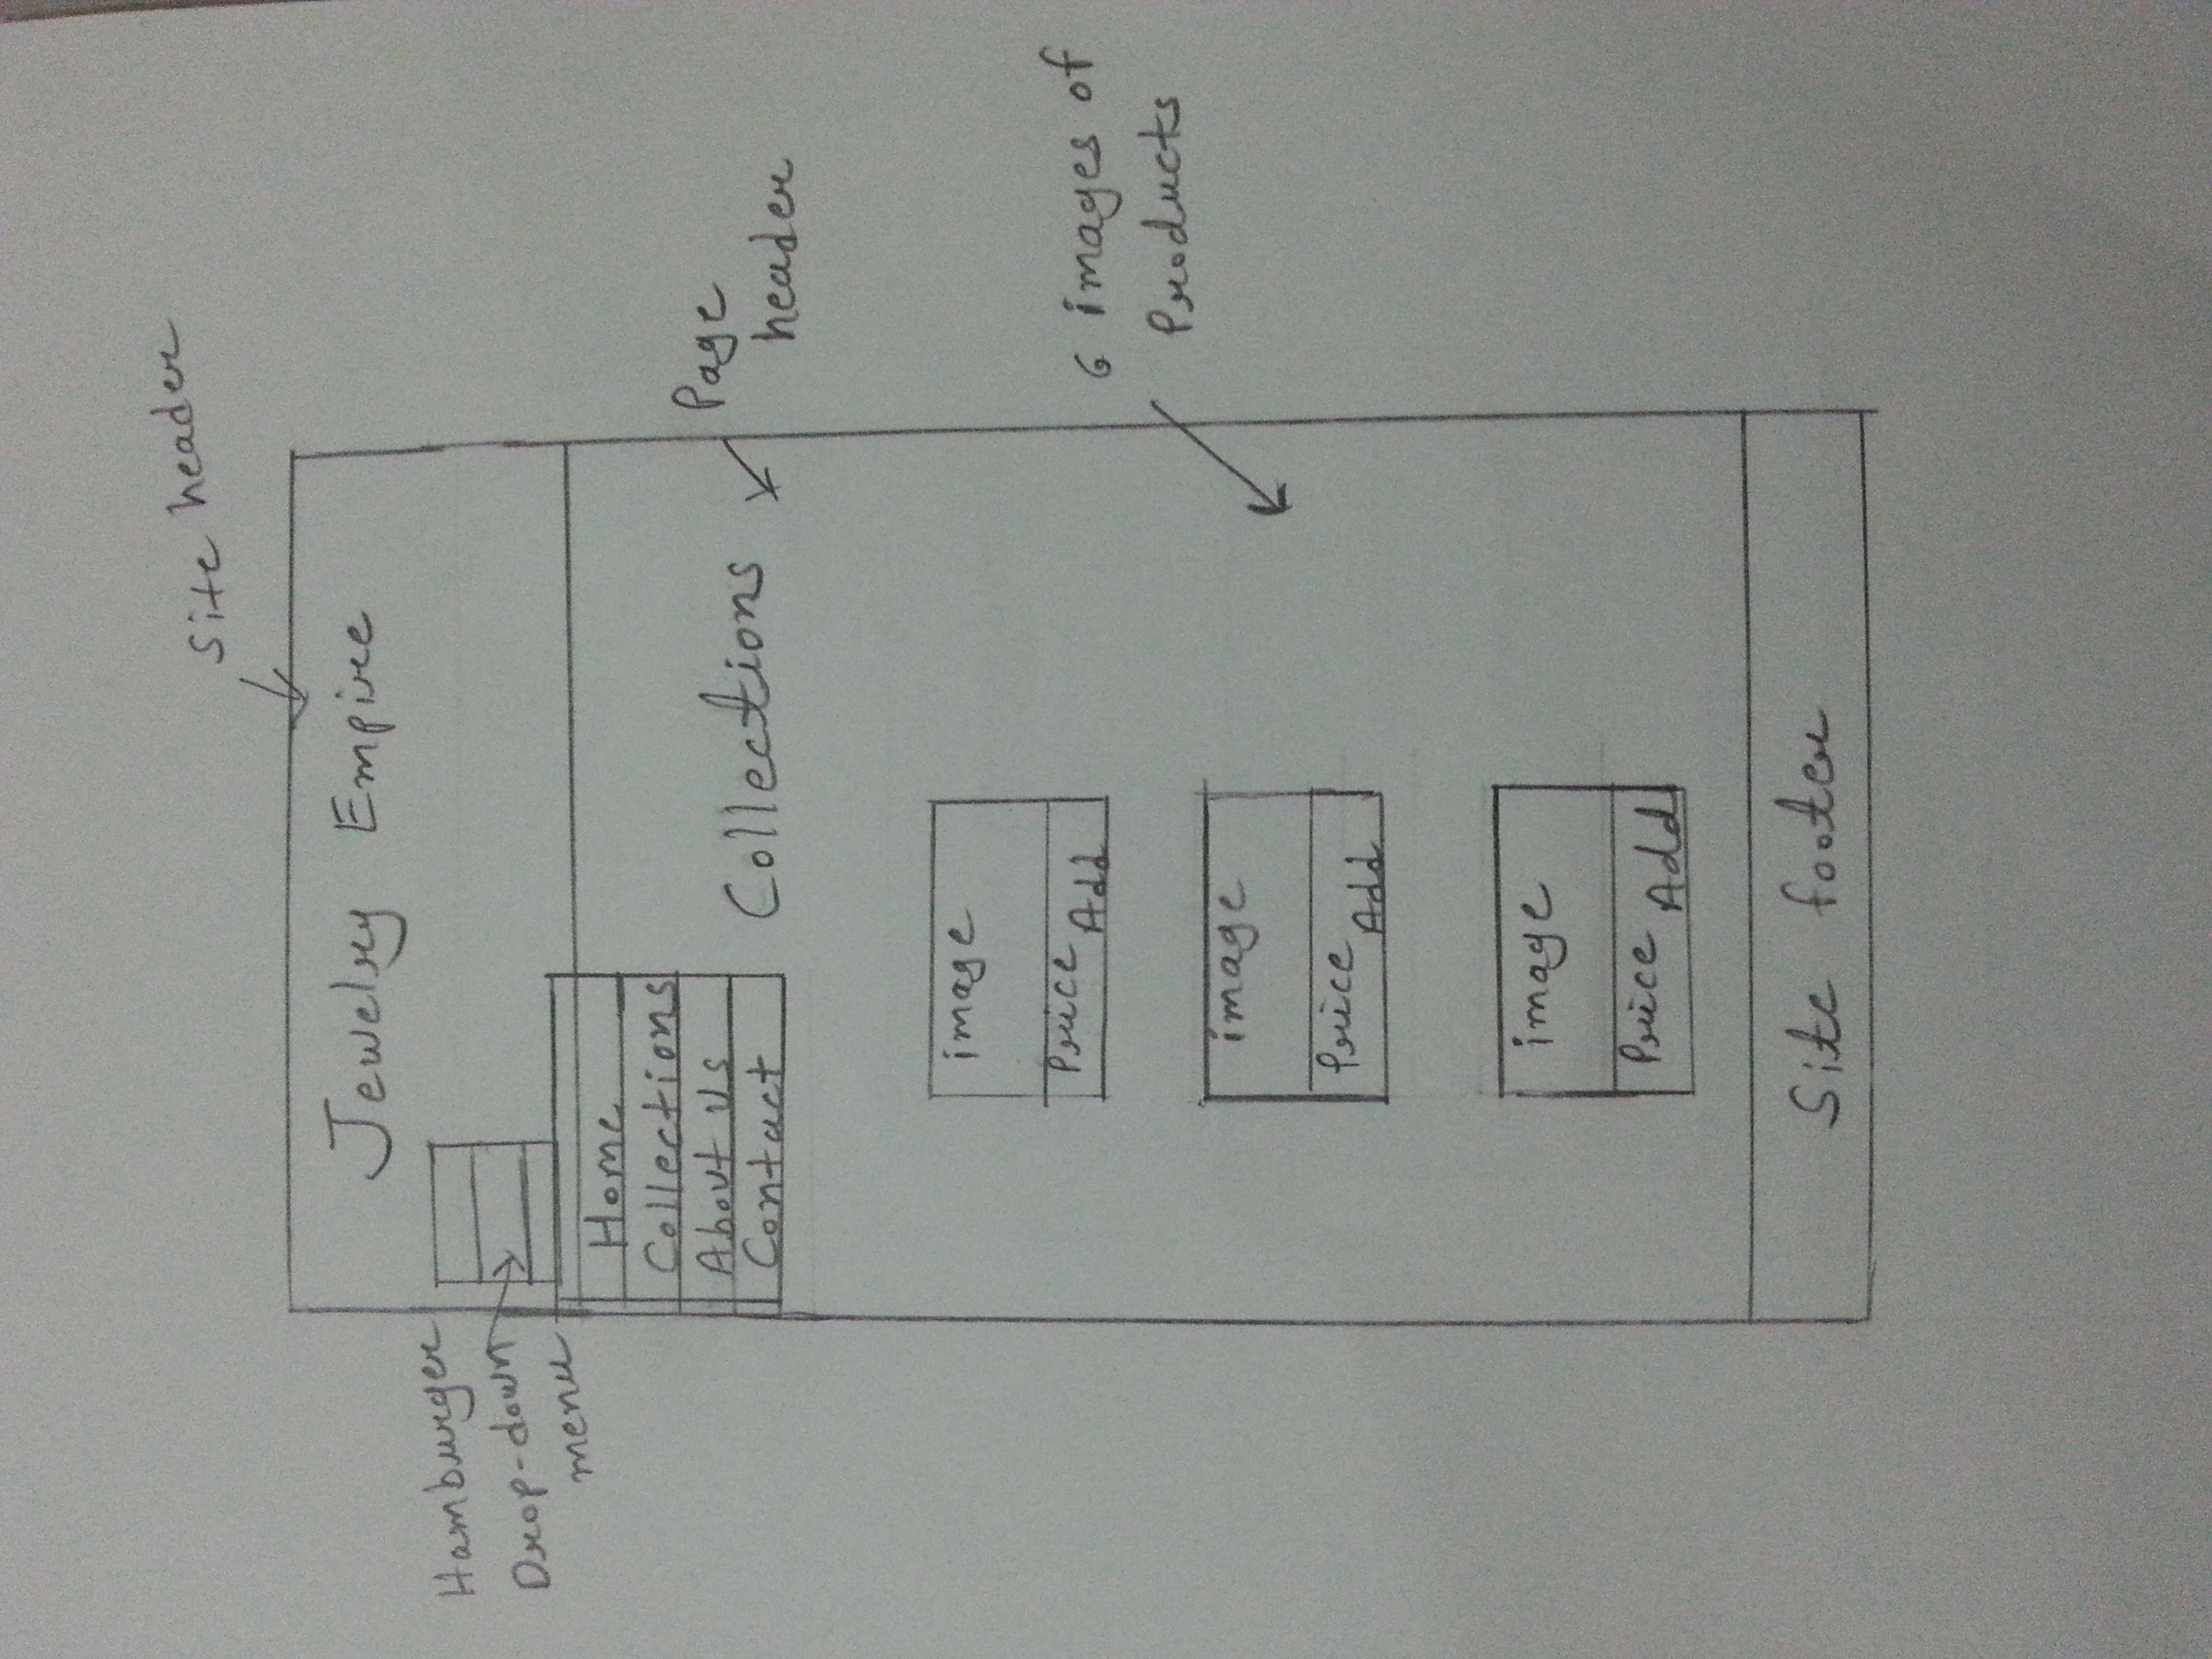 Site header
Jewelry Empire
Hamburger
Drop-down
menu
Home
Collections
About Us
Contact
Collections
Page
header
image
Price Add
6 images of
Products
image
Price Add
image
Price Add
Site footer